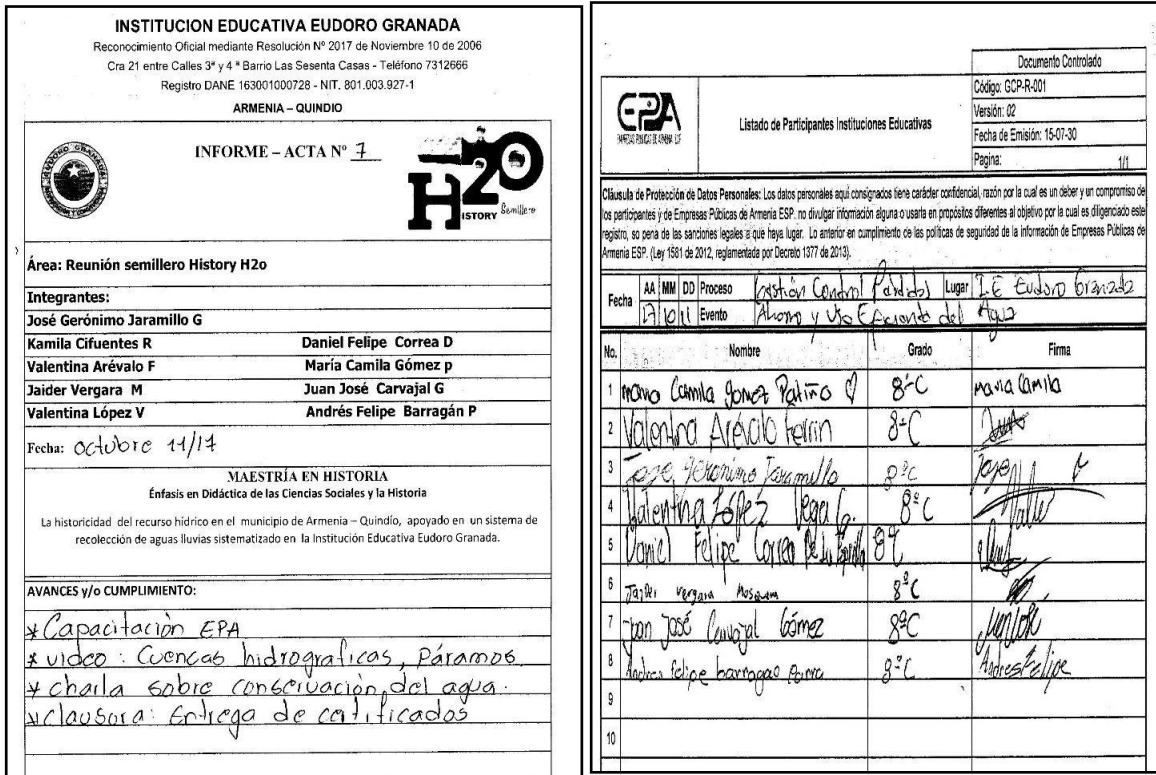 INSTITUCION EDUCATIVA EUDORO GRANADA
Reconocimiento Oficial mediante Resolución Nº 2017 de Noviembre 10 de 2006
Cra 21 entre Calles 3ª y 4 ª Barrio Las Sesenta Casas - Teléfono 7312666
Registro DANE 163001000728 - NIT. 801.003.927-1
ARMENIA – QUINDIO
INFORME – ACTA Nº 7
H2O
ISTORY Semillero
Área: Reunión semillero History H2o
Integrantes:
José Gerónimo Jaramillo G
Kamila Cifuentes R Daniel Felipe Correa D
Valentina Arévalo F María Camila Gómez p
Jaider Vergara M Juan José Carvajal G
Valentina López V Andrés Felipe Barragán P
Fecha: octubre 11/17
MAESTRÍA EN HISTORIA
Énfasis en Didáctica de las Ciencias Sociales y la Historia
La historicidad del recurso hídrico en el municipio de Armenia – Quindío, apoyado en un sistema de
recolección de aguas lluvias sistematizado en la Institución Educativa Eudoro Granada.
AVANCES y/o CUMPLIMIENTO:
* Capacitación EPA
* video: Cuencas hidrograficas, Páramos
* charla sobre conservación del agua.
* clausura: Entrega de certificados
Documento Controlado
EPA
Listado de Participantes Instituciones Educativas
Código: GCP-R-001
Versión: 02
Fecha de Emisión: 15-07-30
Pagina: 1/1
Cláusula de Protección de Datos Personales: Los datos personales aquí consignados tiene carácter confidencial, razón por la cual es un deber y un compromiso de
los participantes y de Empresas Públicas de Armenia ESP. no divulgar información alguna o usarla en propósitos diferentes al objetivo por la cual es diligenciado este
registro, so pena de las sanciones legales a que haya lugar. Lo anterior en cumplimiento de las políticas de seguridad de la información de Empresas Públicas de
Armenia ESP. (Ley 1581 de 2012, reglamentada por Decreto 1377 de 2013).
Fecha AA MM DD Proceso Gestión Control Pérdidas Lugar I.E Eudoro Granada
17 10 11 Evento Ahorro y Uso Eficiente del Agua
No. Nombre Grado Firma
1 Maria Camila Gomez Patiño 8ºC Maria Camila
2 Valentina Arévalo Ferrin 8ºC
3 Jose Geronimo Jaramillo 8ºC Jose
4 Valentina López Vega 8ºC
5 Daniel Felipe Correa De 8ºC
6 Jaider Vergara Mosquera 8ºC
7 Juan José Carvajal Gómez 8ºC
8 Andres felipe barragan 8ºC Andres Felipe
9
10